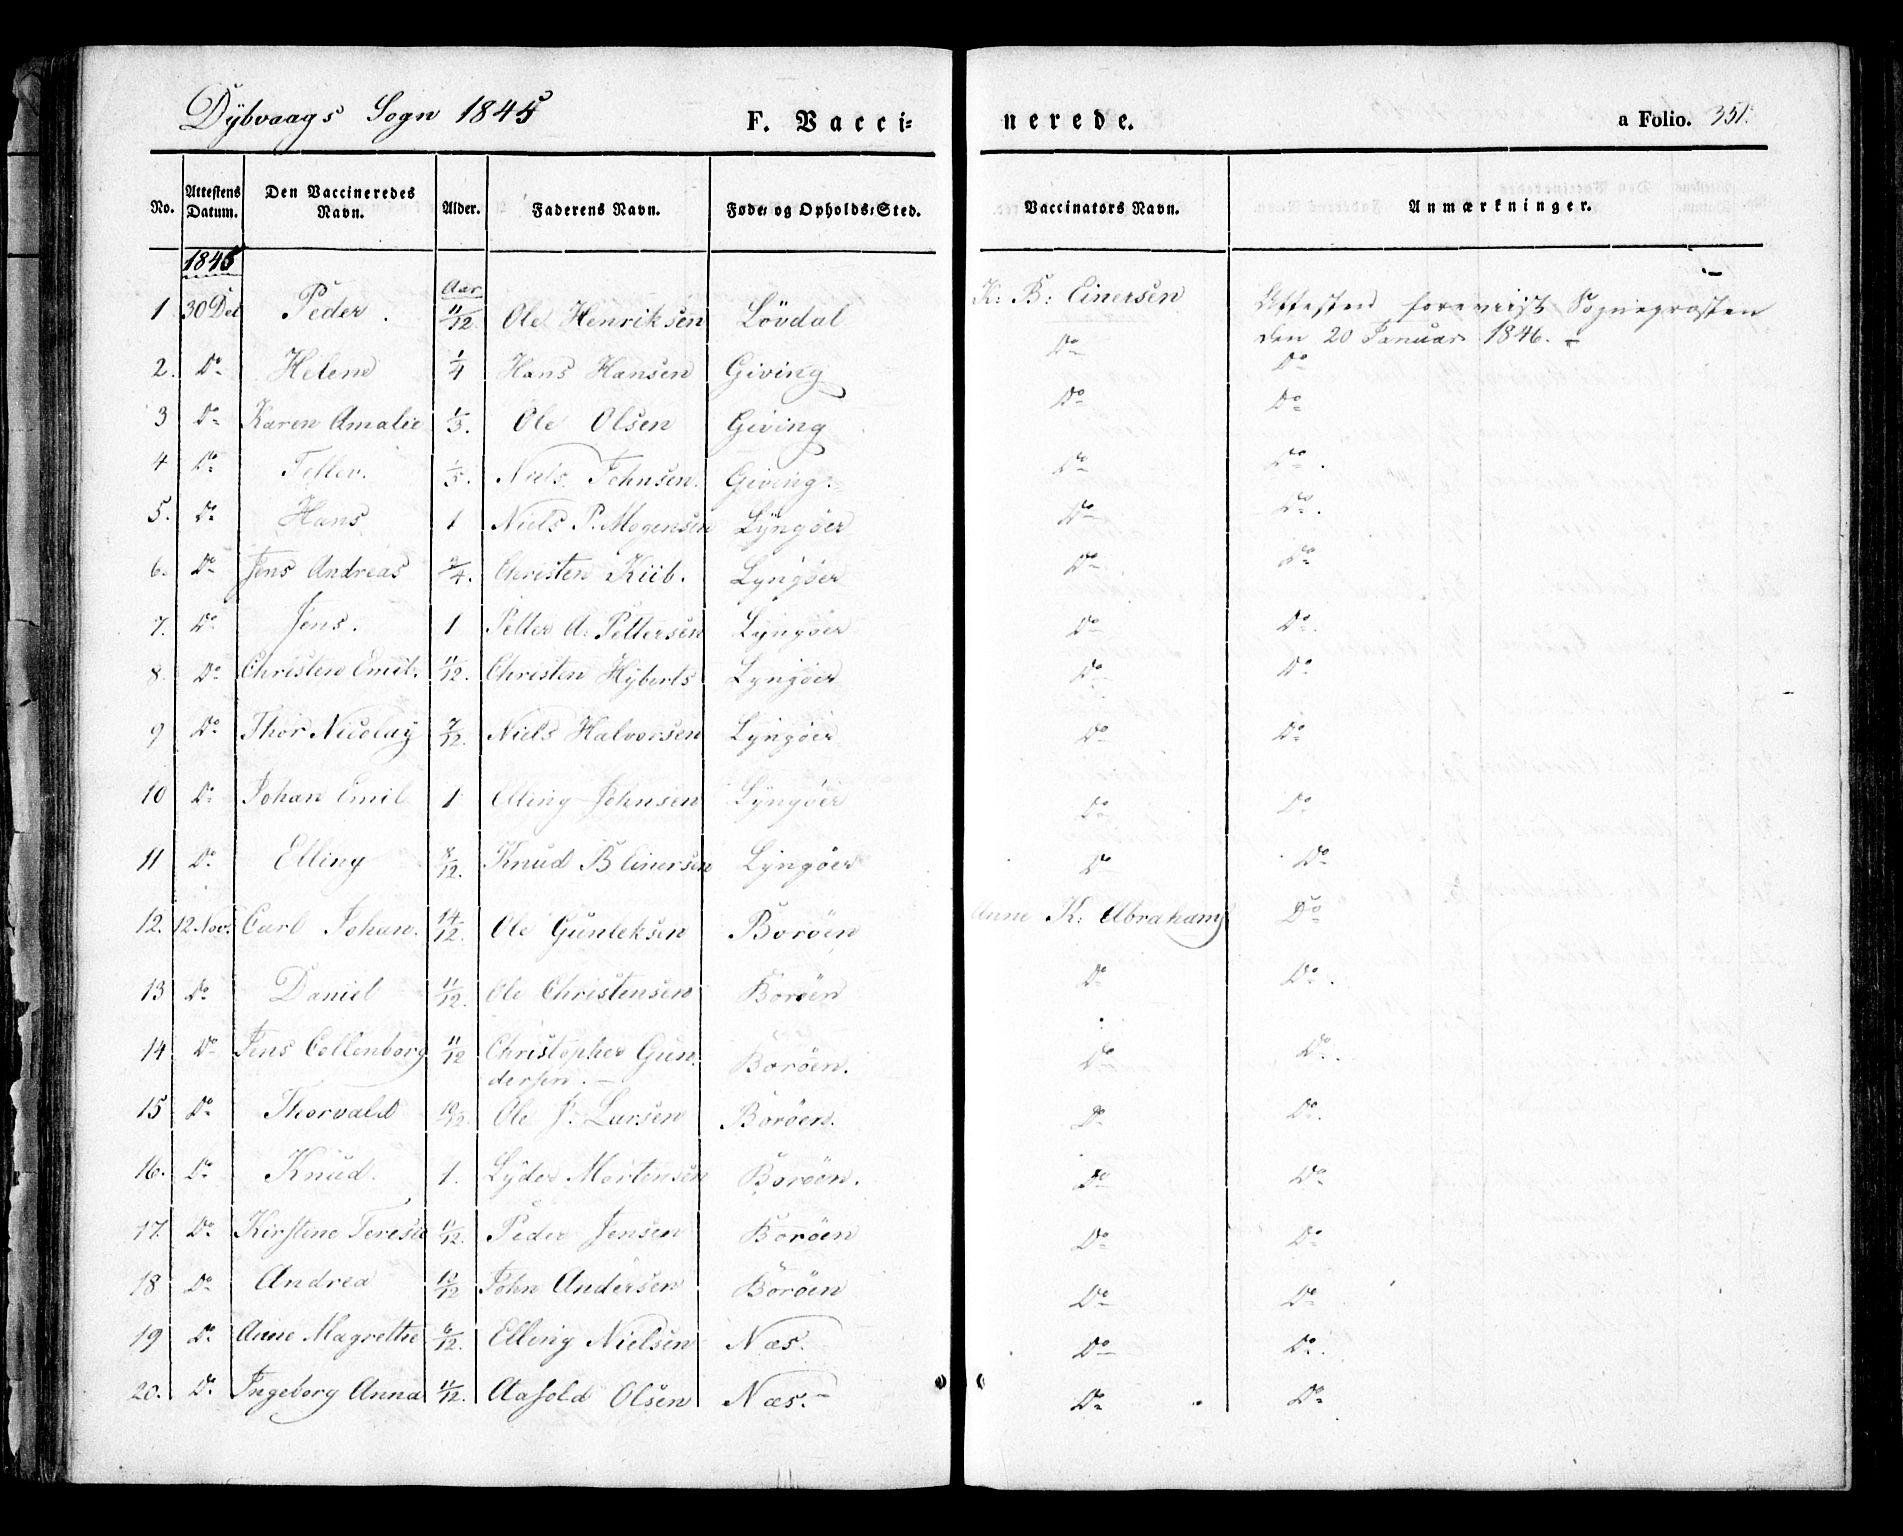 Dÿbvaags Sogn 1845
F. Vacci-
nerede.
a Folio. 351.
No. Attestens Datum. Den Vaccineredes Navn. Alder. Faderens Navn. Føde- og Opholds-Sted. Vaccinators Navn. Anmærkninger.
1845 Aar
1 30 Det Peder. 11/12. Ole Henriksen Lövdal K: B: Einersen Attesten foreviist Sogneprosten
den 20 Januar 1846.
2. Do Helene 1/4 Hans Hansen Giving Do Do
3 Do Karen Amalie 1/3. Ole Olsen Giving Do Do
4 Do Tellev. 1/5. Niels Johnsen. Giving. Do Do.
5. Do Hans 1 Niels P. Mogensen Lÿngöer Do Do.
6. Do Jens Andreas 3/4. Christen Kiib. Lyngöer Do Do
7. Do Jens. 1 Petter A. Pettersen Lyngöer Do Do.
8. Do Christen Emil. 11/12. Christen Hÿberts Lyngöer Do Do
9 Do Thor Nicolaÿ 7/12. Niels Halvorsen Lyngöer Do Do
10 Do Johan Emil 1 Elling Johnsen Lÿngöer Do Do
11 Do Elling 8/12. Knud B Einersen Lyngöer Do Do
12. 12 Nov. Carl Johan. 14/12. Ole Gunleksen Boröen Anne K: Abrahams Do
13 Do Daniel 11/12. Ole Christensen Boröen Do Do.
14 Do Jens Collenborg 11/12 Christopher Gun-
dersen. Boröen. Do Do.
15 Do Thorvald 10/12. Ole J. Larsen Boröen. Do Do.
16. Do Knud. 1. Lÿder Mortensen Boröen. Do Do
17. Do Kirstine Terese 11/12. Peder Jensen Boröen Do Do
18 Do Andrea 10/12 John Andersen Boröen Do Do
19 Do Anne Magrethe 6/12. Elling Nielsen Næs. Do Do.
20. Do Ingeborg Anna 11/12. Aasold Olsen Næs. Do Do